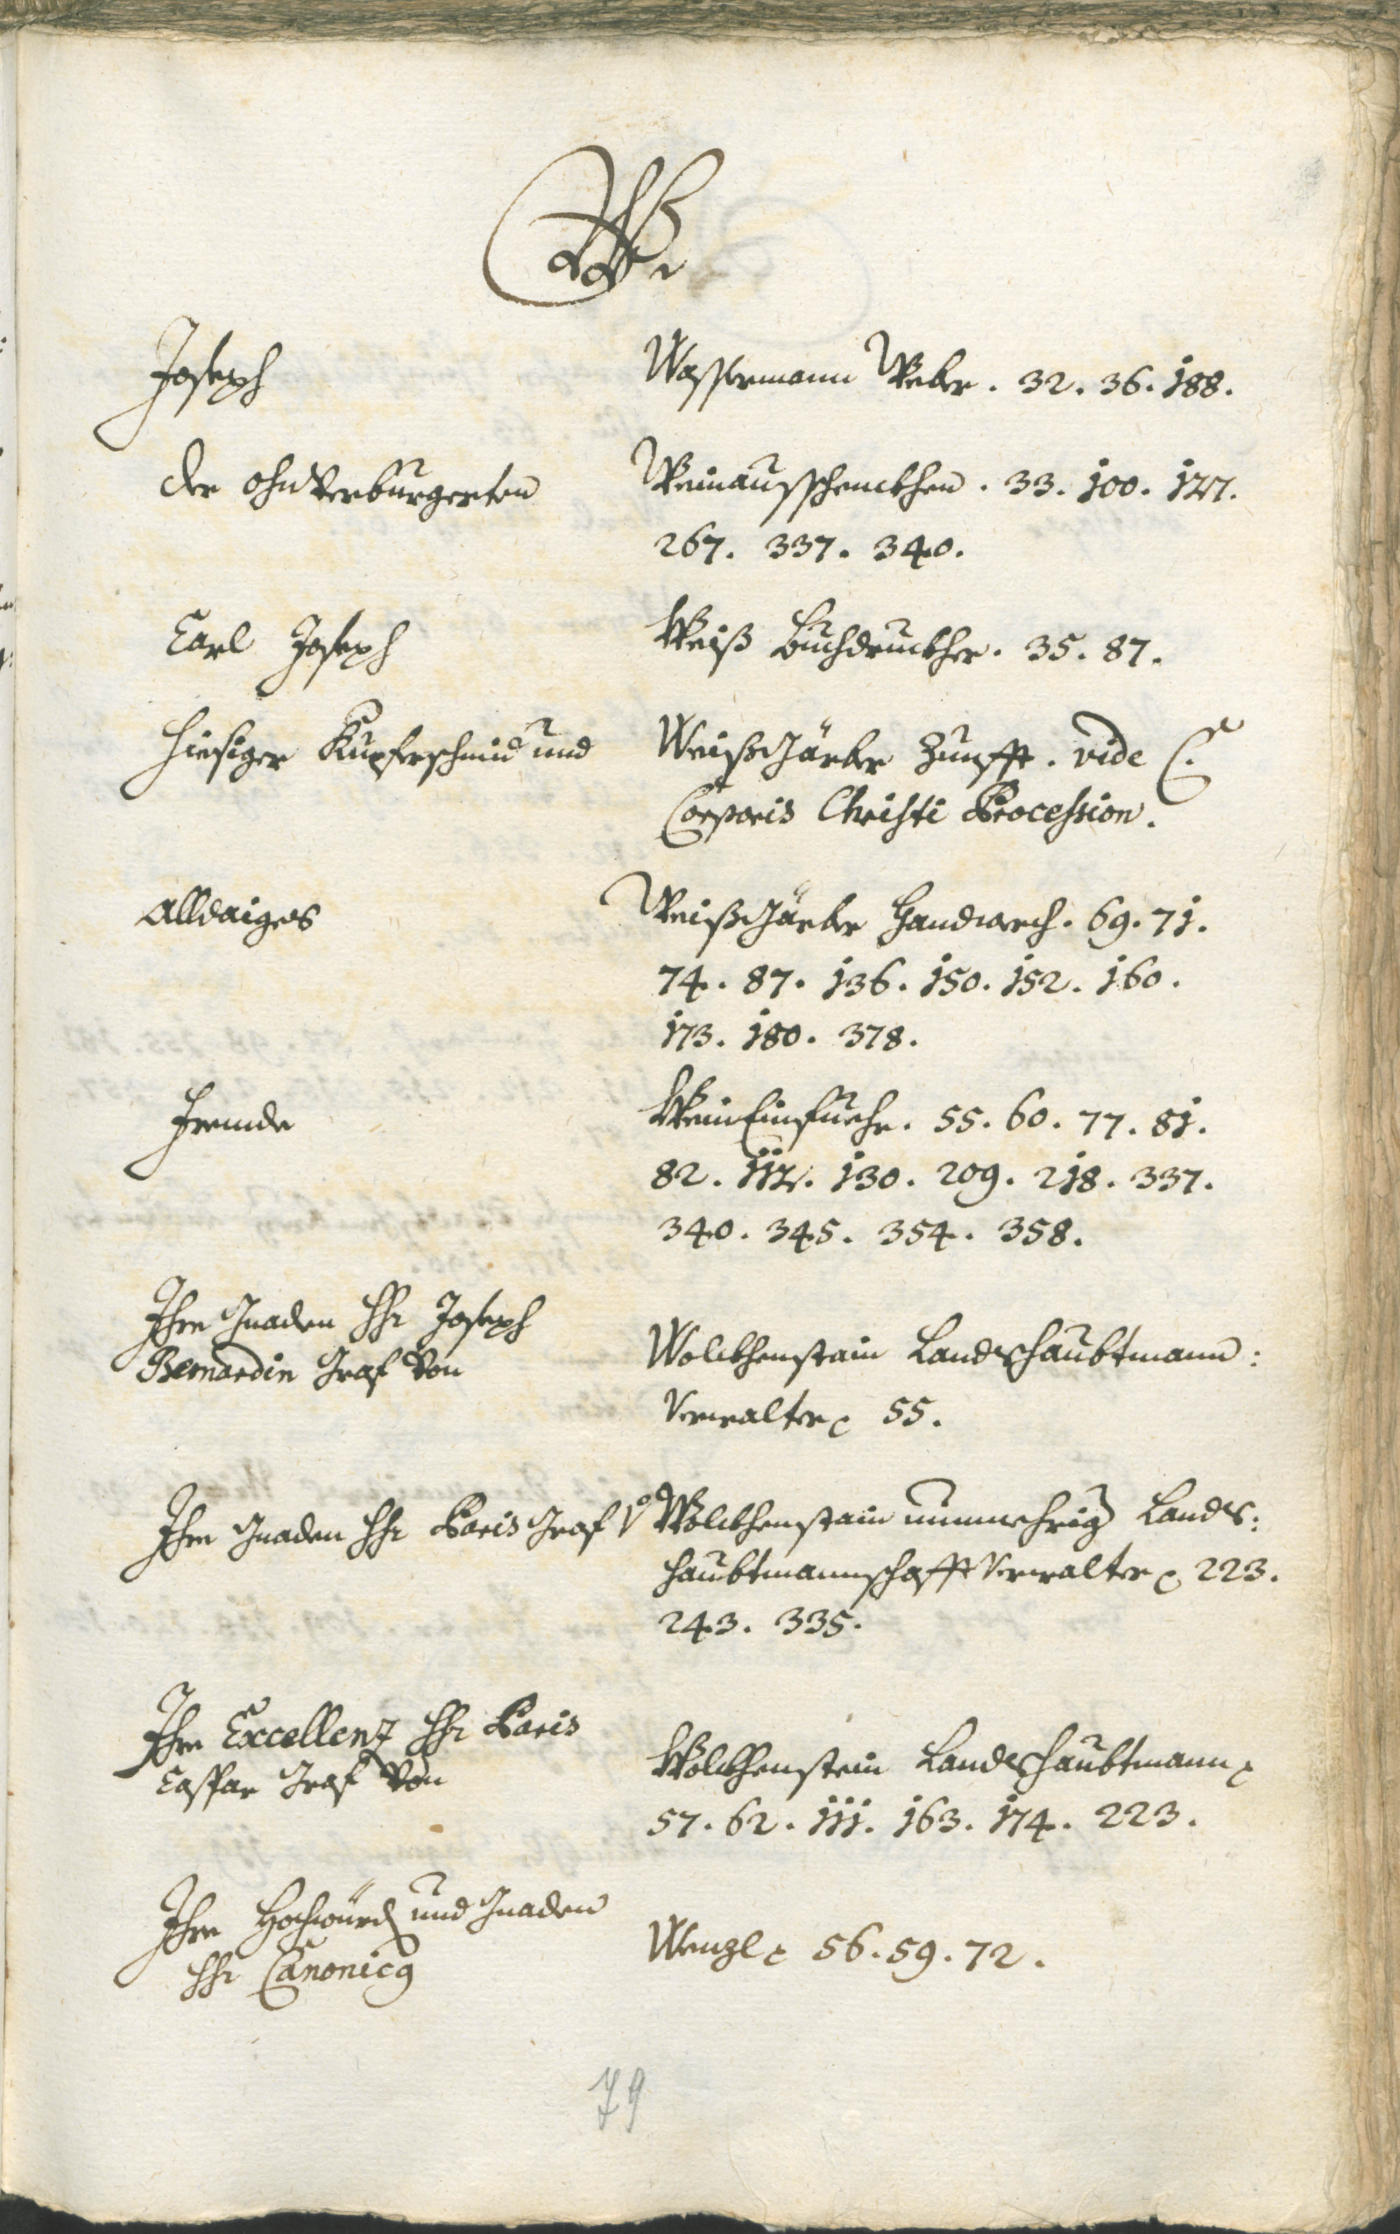 W.
Joseph Wassermann Weber. 32. 36. 188.
der ohnverburgerten Weinausschenckhen. 33. 100. 127.
267. 337. 340.
Carl Joseph Weiß Buchdruckher. 35. 87.
hiesiger Kupferschmid und Weißgärber Zunfft. vide C.
Corporis Christi Procession.
Alldaiges Weißgärber Handwerch. 69. 71.
74. 87. 136. 150. 152. 160.
173. 180. 378.
frembde Wein Einfuehr. 55. 60. 77. 81.
82. 112. 130. 209. 218. 337.
340. 345. 354. 358.
Ihro Gnaden Hhr Joseph
Bernardin Graf von Wolckhenstain Landshaubtmann:
Verwalter 55.
Ihro Gnaden Hhr Paris Graf v. Wolckhenstain nunmehrig Lands:
haubtmannschafft Verwalter 223.
243. 335.
Ihro Excellenz Hhr Paris
Caspar Graf von Wolckhenstein Landshaubtmann
57. 62. 111. 163. 174. 223.
Ihro Hochwürd und Gnaden
Hhr Canonicus Wenzl 56. 59. 72.
79